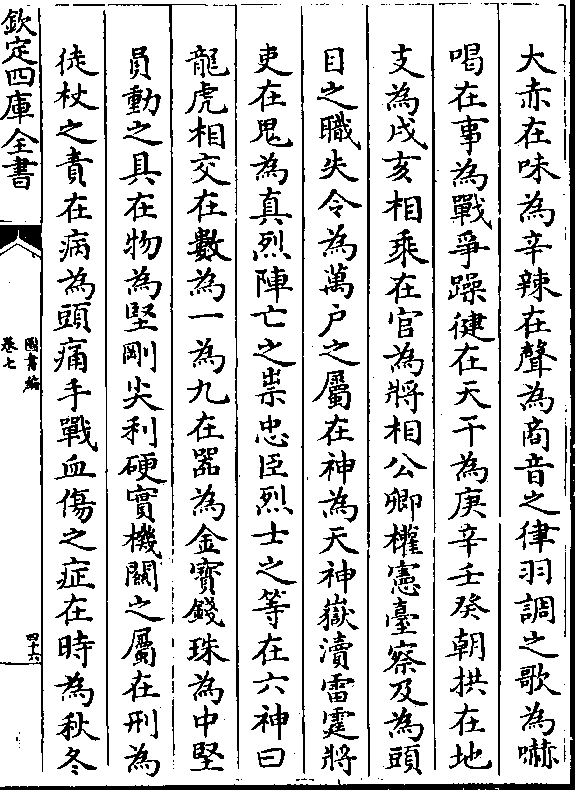 大赤在味為辛辣在聲為商音之律羽調之歌為嚇
喝在事為戰爭躁健在天干為庚辛壬癸朝拱在地
支為戌亥相乘在官為將相公卿權憲臺察及為頭
目之職失令為萬戶之屬在神為天神嶽瀆雷霆將
吏在鬼為真烈陣亡之祟忠臣烈士之等在六神曰
龍虎相交在數為一為九在器為金寶錢珠為中堅
員動之具在物為堅剛尖利硬實機關之屬在刑為
徒杖之責在病為頭痛手戰血傷之症在時為秋冬
欽定四庫全書
圖書編
卷七
四十六